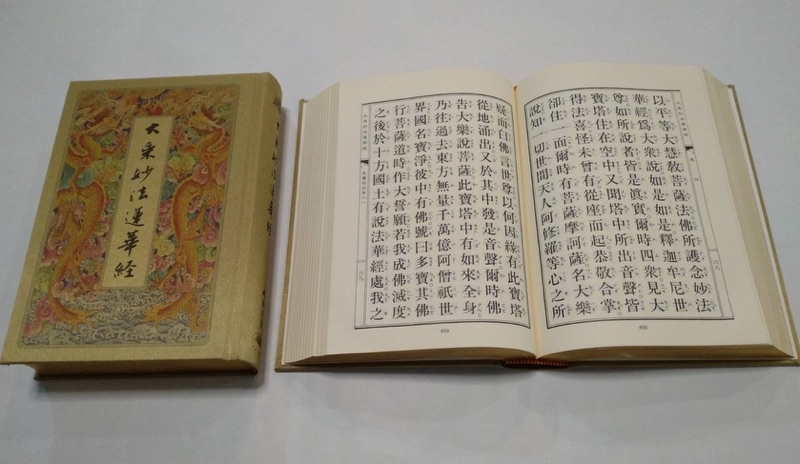 大乘妙法蓮華經
以平等大慧教菩薩法佛所護念妙法
華經為大眾說如是如是釋迦牟尼世
尊如所說者皆是真實爾時四眾見大
寶塔住在空中又聞塔中所出音聲皆
得法喜怪未曾有從座而起恭敬合掌
卻住一面爾時有菩薩摩訶薩名大樂
說知一切世間天人阿修羅等心之所
疑而白佛言世尊以何因緣有此寶塔
從地涌出又於其中發是音聲爾時佛
告大樂說菩薩此寶塔中有如來全身
乃往過去東方無量千萬億阿僧祇世
界國名寶淨彼中有佛號曰多寶其佛
行菩薩道時作大誓願若我成佛滅度
之後於十方國土有說法華經處我之